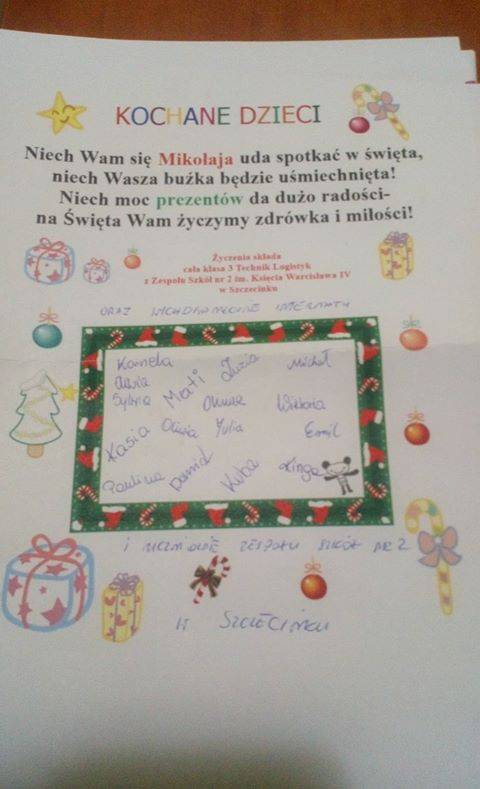 KOCHANE DZIECI
Niech Wam się Mikołaja uda spotkać w święta,
niech Wasza buźka będzie uśmiechnięta!
Niech moc prezentów da dużo radości-
na Święta Wam życzymy zdrówka i miłości!
Życzenia składa
cała klasa 3 Technik Logistyk
z Zespołu Szkół nr 2 im. Księcia Warcisława IV
w Szczecinku
ORAZ WYCHOWANKOWIE INTERNATU
Kornela Zuzia Michał
Oliwia Mati
Sylwia Wiktoria
Kasia Oliwia Julia Emil
Paulina Daniel Kuba Kinga
I UCZNIOWIE ZESPOŁU SZKÓŁ NR 2
W SZCZECINKU